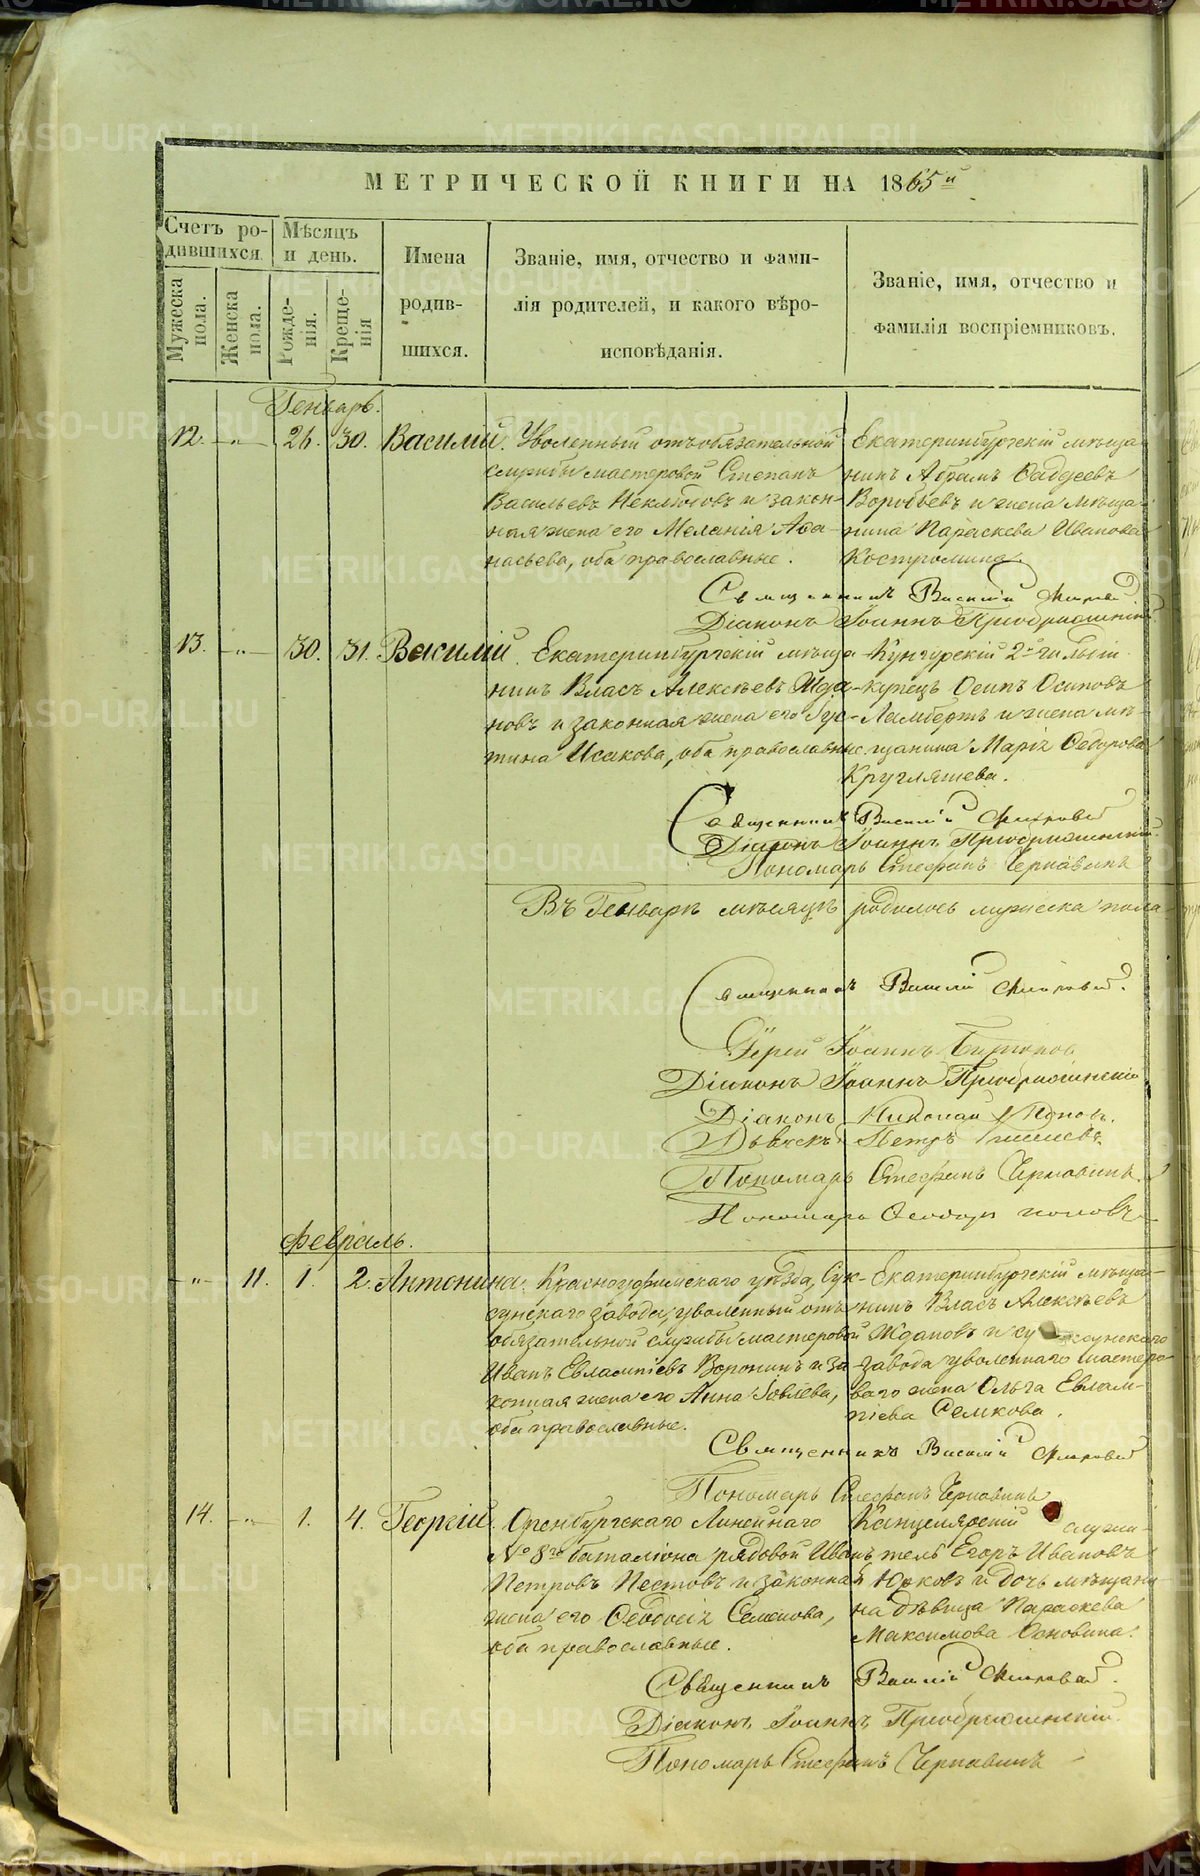 МЕТРИЧЕСКОЙ КНИГИ НА 1865й
Счетъ ро-
дившихся.
Мѣсяцъ
и день.
Мужеска
пола.
Женска
пола.
Рожде-
нія.
Креще-
нія
Имена
родив-
шихся.
Званіе, имя, отчество и фами-
лія родителей, и какого вѣро-
исповѣданія.
Званіе, имя, отчество и
фамилія воспріемниковъ.
Генварь.
12. -"- 26. 30. Василій.
Уволенный отъ обязательной
службы мастеровой Степанъ
Васильевъ Неклюдовъ и закон-
ная жена его Меланія Афа-
насьева, оба православные.
Екатеринбургскій мѣща-
нинъ Абрамъ Фаддеевъ
Воробьевъ и жена мѣща-
нина Параскева Иванова
Костромина.
Священникъ Василій
Діаконъ Іоаннъ Преображенскій.
13. -"- 30. 31. Василій.
Екатеринбургскій мѣща-
нинъ Власъ Алексѣевъ Жда-
новъ и законная жена его Іус-
тина Исакова, оба православные
Кунгурскій 2й гильдіи
купецъ Осипъ Осиповъ
Ламбертъ и жена мѣ-
щанина Марія Федорова
Кругляшева.
Священникъ Василій
Діаконъ Іоаннъ Преображенскій.
Пономарь Стефанъ Чернавинъ
Въ Генварѣ мѣсяцѣ родилось мужеска пола
Священникъ Василій
Іерей Іоаннъ
Діаконъ Іоаннъ Преображенскій
Діаконъ Николай Поповъ.
Дьячекъ Петръ
Пономарь Стефанъ Чернавинъ.
Пономарь Феодоръ Поповъ
Февраль.
-"- 11. 1. 2. Антонина.
Красноуфимскаго уѣзда, Сук-
сунскаго завода, уволенный отъ
обязательной службы мастеровой
Иванъ Евлампіевъ Воронинъ и за-
конная жена его Анна Іовлева,
оба православные.
Екатеринбургскій мѣща-
нинъ Власъ Алексѣевъ
Ждановъ и су ксунскаго
завода уволеннаго мастеро-
ваго жена Ольга Евлам-
піева Семкова.
Священникъ Василій
Пономарь Стефанъ Чернавинъ
14. -"- 1. 4. Георгій.
Оренбургскаго Линейнаго
№ 8го баталіона рядовой Иванъ
Петровъ Пестовъ и законная
жена его Феодосія Семенова,
оба православные.
Канцелярскій служи-
тель Егоръ Ивановъ
Юрковъ и дочь мѣщани-
на дѣвица Параскева
Максимова Основина.
Священникъ Василій
Діаконъ Іоаннъ Преображенскій.
Пономарь Стефанъ Чернавинъ
METRIKI.GASO-URAL.RU